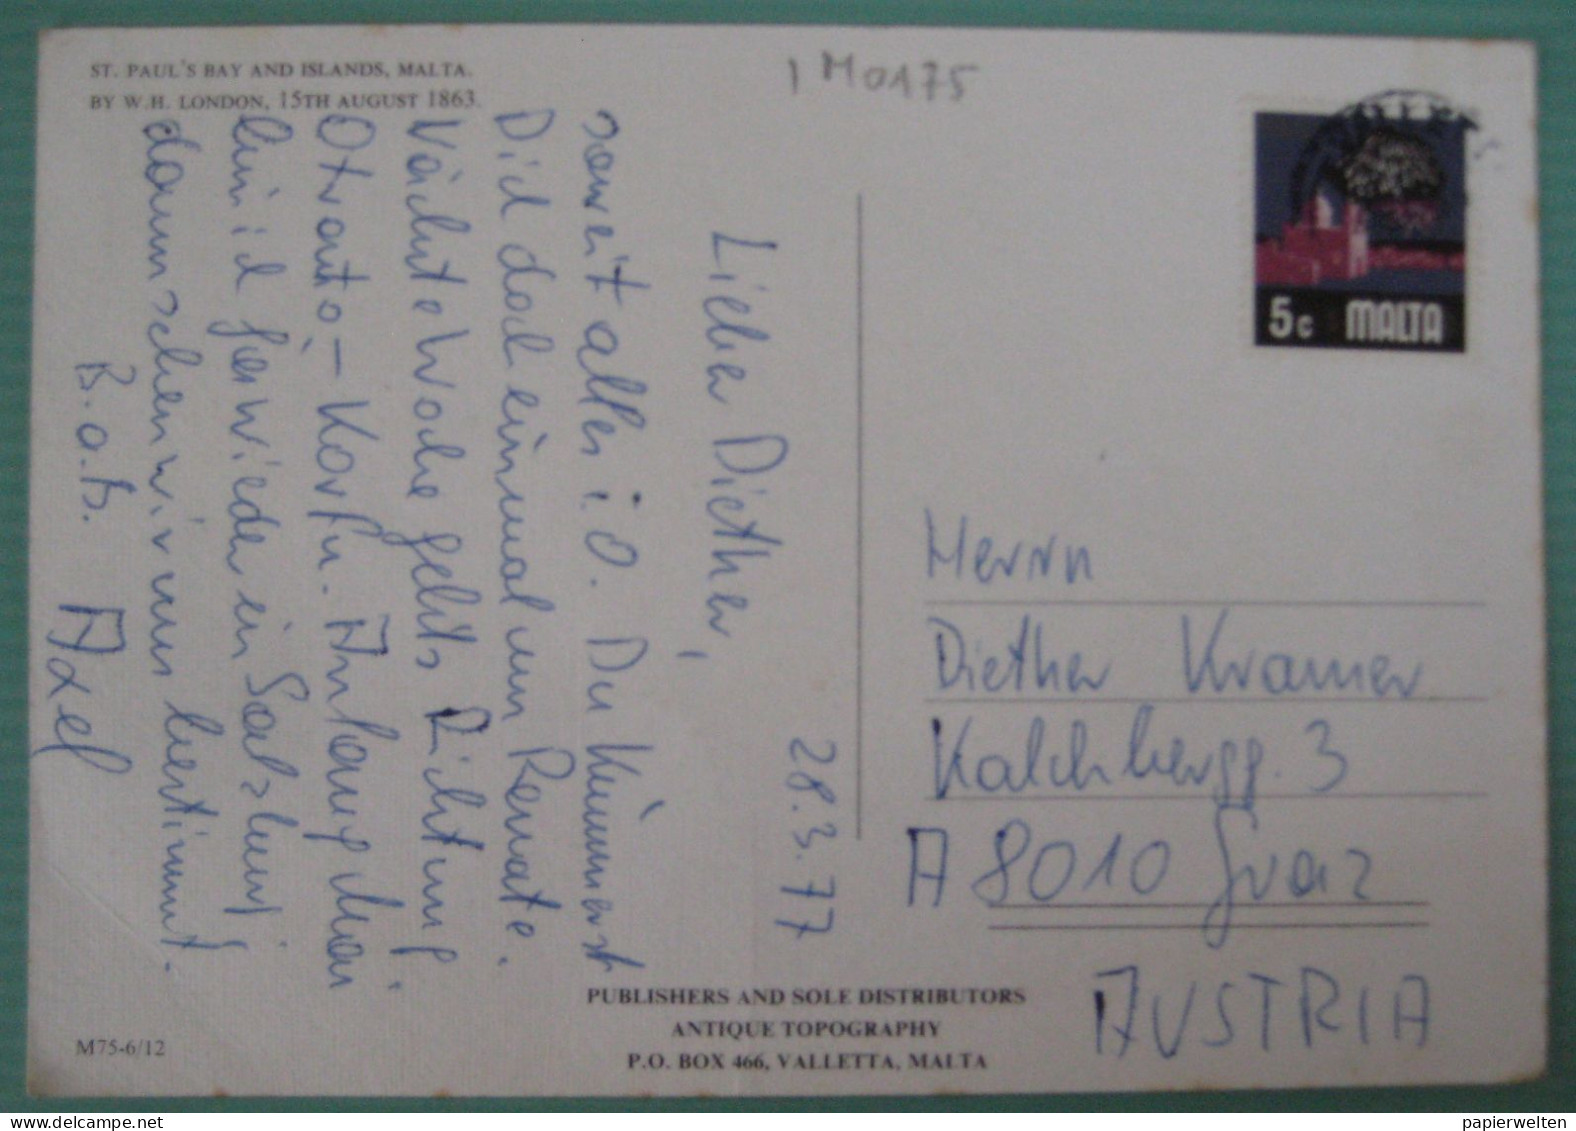 ST. PAUL'S BAY AND ISLANDS, MALTA.
BY W.H. LONDON, 15TH AUGUST 1863.
1M0175
28.3.77
Lieber Diether,
soweit alles i.O. Du kümmerst
Dich doch einmal um Renate.
Nächste Woche geht's Richtung
Otranto, – Korfu. Anfang Mai
bin ich wieder in Salzburg,
dann sehen wir uns bestimmt.
B.a.B.
Axel
5c MALTA
Herrn
Diether Kramer
Kalchbergg. 3
A 8010 Graz
AUSTRIA
PUBLISHERS AND SOLE DISTRIBUTORS
ANTIQUE TOPOGRAPHY
P.O. BOX 466, VALLETTA, MALTA
M75-6/12
papierwelten
delcampe.net